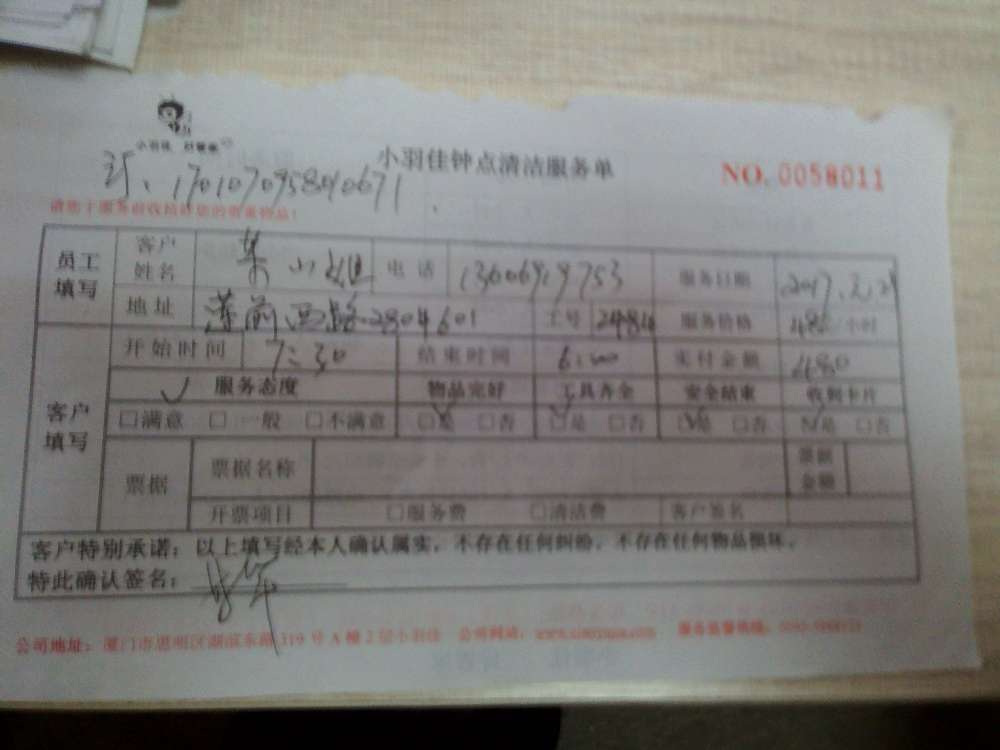 小羽佳
小羽佳钟点清洁服务单
NO. 0058011
170107095840671
请您于服务前收拾好您的贵重物品!
员工填写 客户姓名 小姐 电话 服务日期
地址 莲前西路2804601 工号 服务价格 小时
客户填写 开始时间 7:30 结束时间 6:00 实付金额 480
服务态度 物品完好 工具齐全 安全结束 收到卡片
□满意 □一般 □不满意 □是 □否 □是 □否 □是 □否 □是 □否
票据 票据名称 票据金额
开票项目 □服务费 □清洁费 客户签名
客户特别承诺:以上填写经本人确认属实,不存在任何纠纷,不存在任何物品损坏。
特此确认签名:
公司地址:厦门市思明区湖滨东路319号A幢2层小羽佳 公司网站: 服务监督热线: